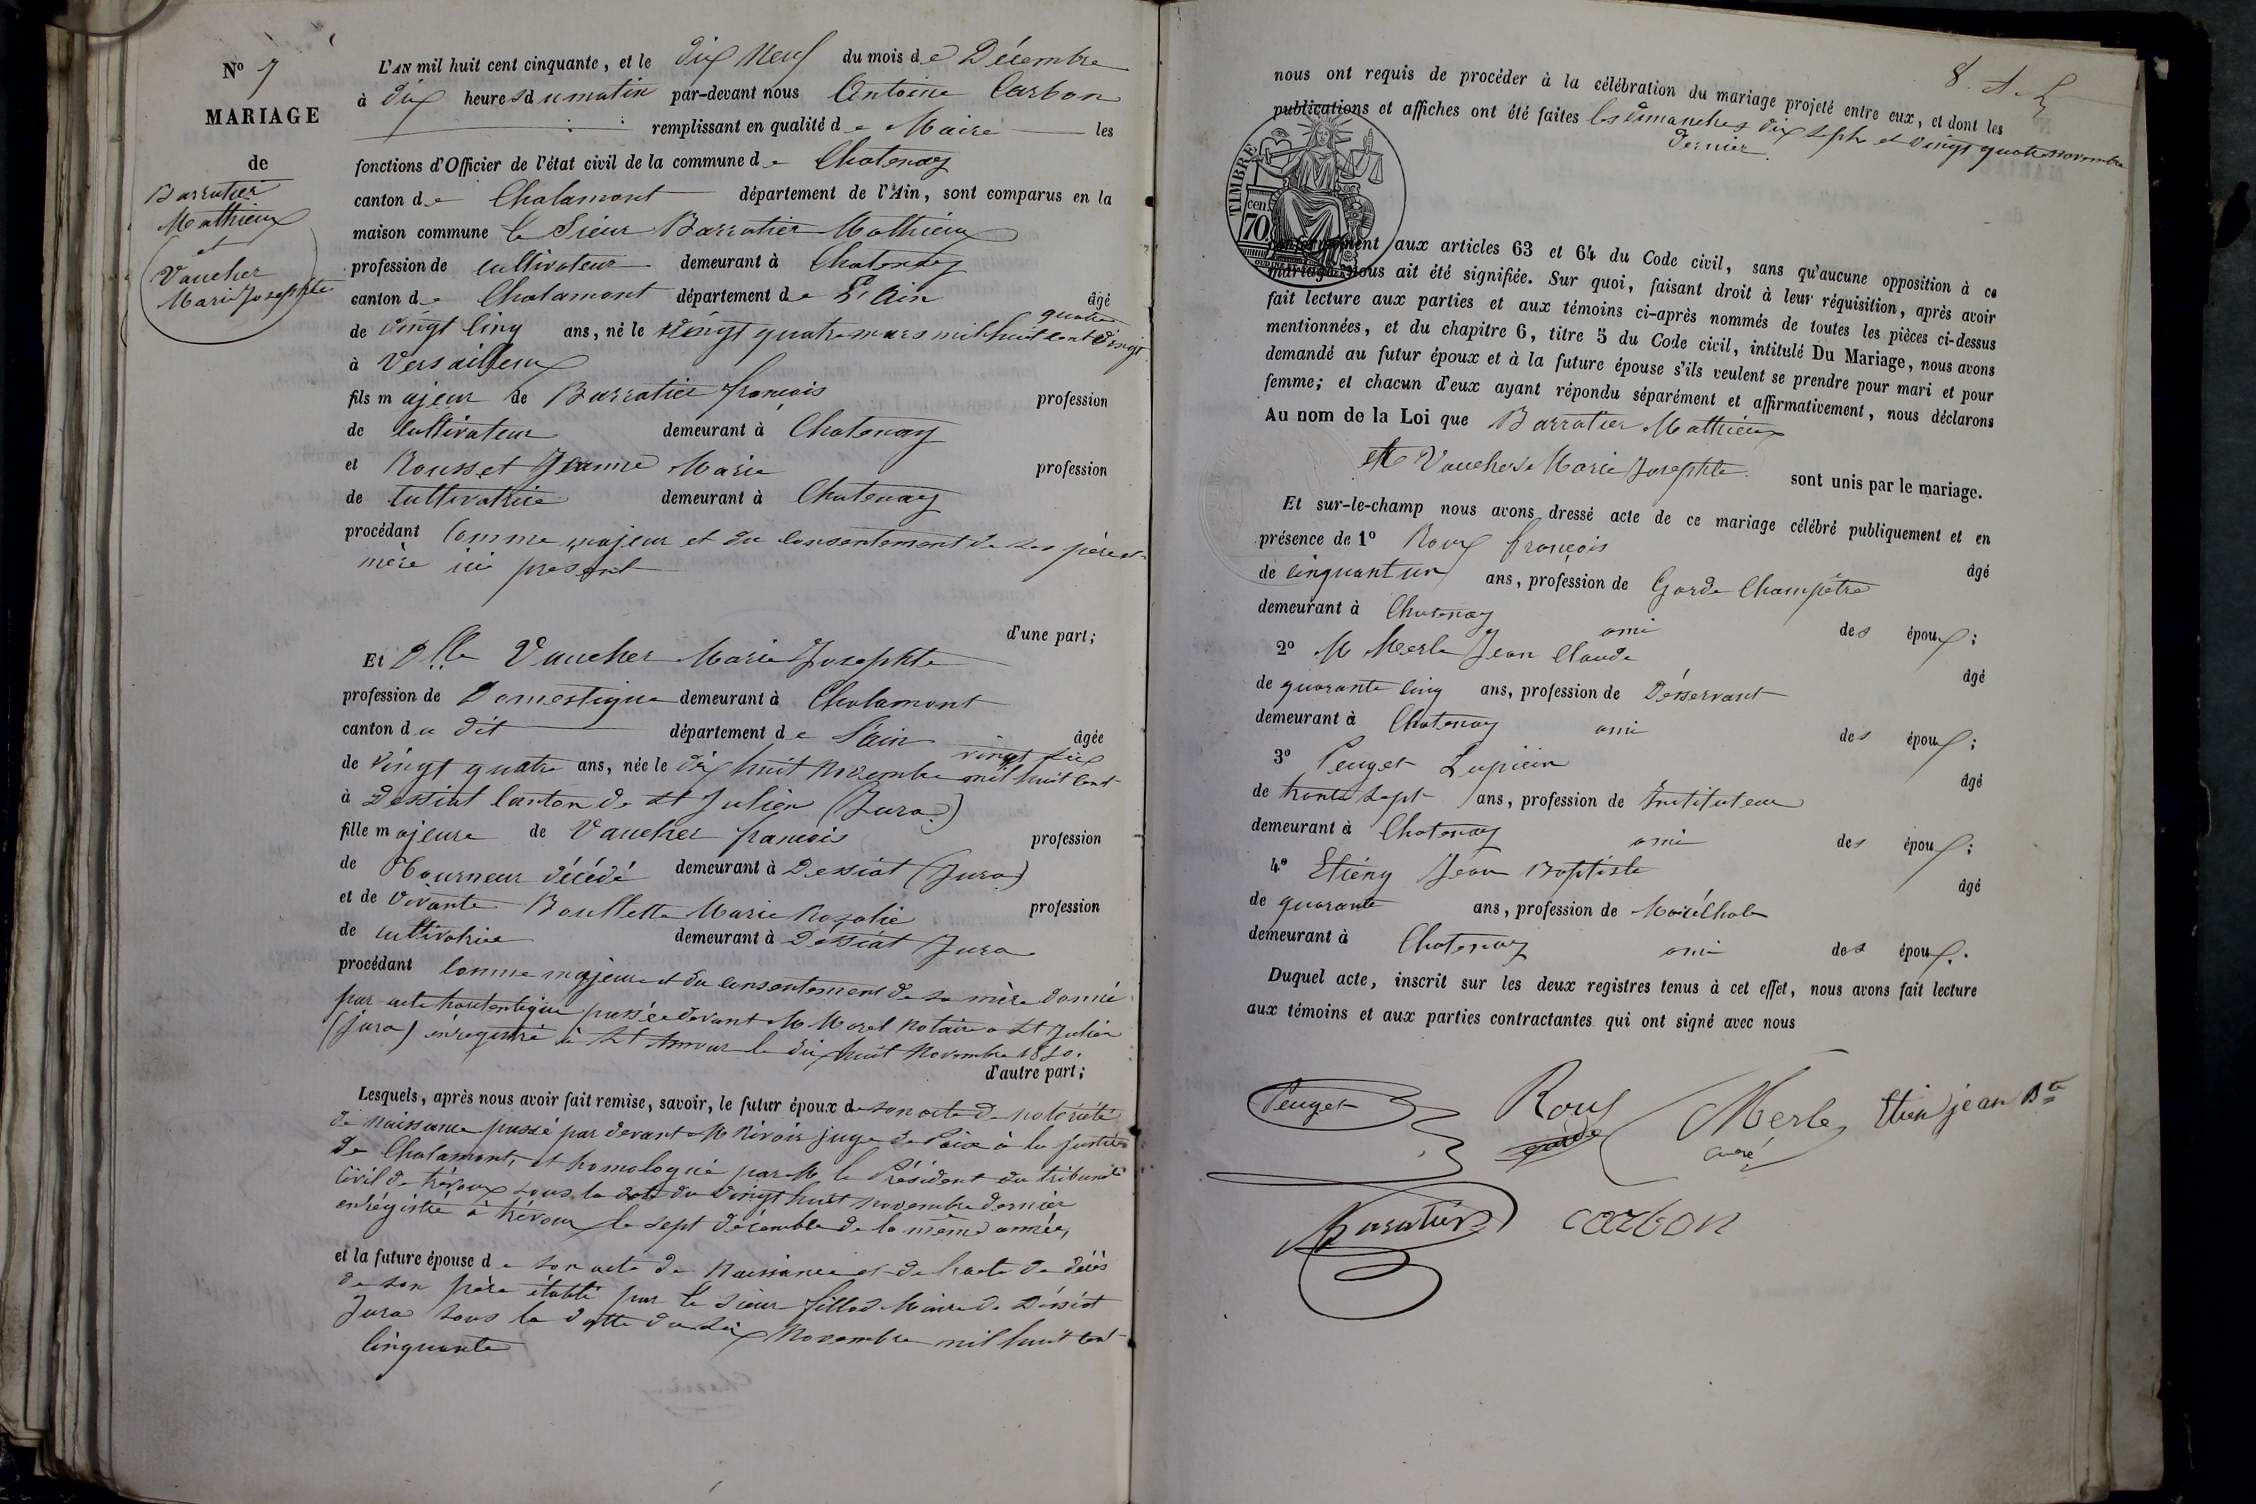 N° 7
MARIAGE
de
Barratier
Mathieux
et
Vaucher
Marie Josephte
L'AN mil huit cent cinquante, et le dix Neuf du mois de Décembre
à dix heures du matin par-devant nous Antoine Carbon
remplissant en qualité de Maire les
fonctions d'Officier de l'état civil de la commune de Chatenay
canton de Chalamont département de l'Ain, sont comparus en la
maison commune le Sieur Barratier Mathieux
profession de cultivateur demeurant à Chatenay
canton de Chalamont département de L'Ain âgé
quatre
de vingt cinq ans, né le vingt quatre mars mil huit cent vingt
à Versailleux
fils majeur de Barratier françois profession
de Cultivateur demeurant à Chatenay
et Rousset Jeanne Marie profession
de Cultivatrice demeurant à Chatenay
procédant Comme majeur et du Consentement de ses père et
mère ici present
d'une part;
Et Dlle Vaucher Marie Josephte
profession de Domestique demeurant à Chalamont
canton du dit département de l'ain âgée
vingt six
de vingt quatre ans, née le dix huit Novembre mil huit cent
à Dessiat Canton de St Julien (Jura)
fille majeure de Vaucher françois profession
de Tourneur décédé demeurant à Dessiat (Jura)
et de vivante Boullette Marie Rosalie profession
de cultivatrice demeurant à Dessiat Jura
procédant Comme majeure et du consentement de sa mère donné
par acte hautentique passée devant M Morel Notaire a St Julien
(Jura) enregistré à St Amour le dix huit Novembre 1850.
d'autre part;
Lesquels, après nous avoir fait remise, savoir, le futur époux de son acte de notoriété
de Naissance passé par devant M Rivoir juge de Paix à la justice
de Chalamont, et homologué par M le Président du tribunal
Civil de trévoux sous la date du vingt huit novembre dernier
enrégistré à trévoux le sept décembre de la même année,
et la future épouse de son acte de Naissance et de l'acte de décès
de son père établi par le sieur fillod Maire de Dessiat
Jura sous la datte du six Novembre mil huit cent
Cinquante
8. A. L
nous ont requis de procéder à la célébration du mariage projeté entre eux, et dont les
publications et affiches ont été faites les dimanches dix sept et vingt quatre novembre
dernier.
TIMBRE
cen.
70
conformément aux articles 63 et 64 du Code civil, sans qu'aucune opposition à ce
mariage nous ait été signifiée. Sur quoi, faisant droit à leur réquisition, après avoir
fait lecture aux parties et aux témoins ci-après nommés de toutes les pièces ci-dessus
mentionnées, et du chapitre 6, titre 5 du Code civil, intitulé Du Mariage, nous avons
demandé au futur époux et à la future épouse s'ils veulent se prendre pour mari et pour
femme; et chacun d'eux ayant répondu séparément et affirmativement, nous déclarons
Au nom de la Loi que Barratier Mathieux
et Vaucher Marie Josephte sont unis par le mariage.
Et sur-le-champ nous avons dressé acte de ce mariage célébré publiquement et en
présence de 1° Roux françois âgé
de cinquant un ans, profession de Garde Champêtre
demeurant à Chatenay ami des époux;
2° M Merle Jean Claude âgé
de quarante cinq ans, profession de Désservant
demeurant à Chatenay ami des époux;
3° Peuget Lupicin âgé
de trente sept ans, profession de Instituteur
demeurant à Chatenay ami des époux;
4° Etiény Jean Baptiste âgé
de quarante ans, profession de Maréchale
demeurant à Chatenay ami des époux.
Duquel acte, inscrit sur les deux registres tenus à cet effet, nous avons fait lecture
aux témoins et aux parties contractantes qui ont signé avec nous
Peuget Roux Merle Etien jean Bte
garde curé
Baratier carbon